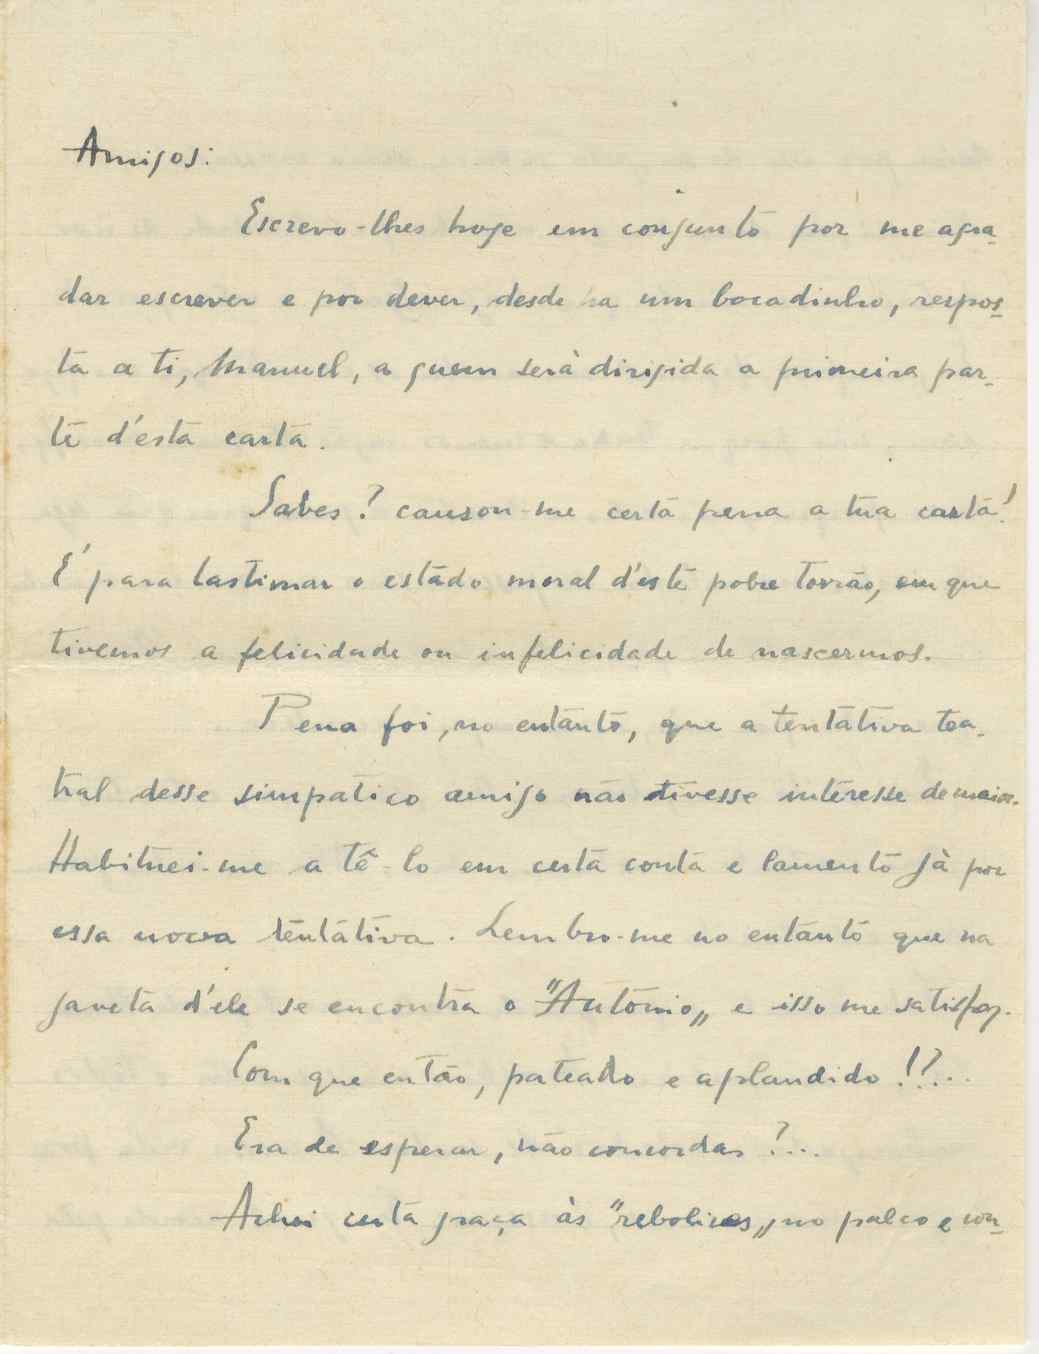 Amigos:
Escrevo-lhes hoje em conjunto por me agra-
dar escrever e por dever, desde ha um bocadinho, respos-
ta a ti, Manuel, a quem será dirigida a primeira par-
te d'esta carta.
Sabes? causou-me certa pena a tua carta!
É para lastimar o estado moral d'este pobre torrão, em que
tivemos a felicidade ou infelicidade de nascermos.
Pena foi, no entanto, que a tentativa tea-
tral desse simpatico amigo não tivesse interesse de maior.
Habituei-me a tê-lo em certa conta e lamento já por
essa nova tentativa. Lembro-me no entanto que na
gaveta d'ele se encontra o "António„ e isso me satisfaz.
Com que então, pateado e aplaudido!?...
Era de esperar, não concordas?...
Achei certa graça às "rebolices„ no palco e con-